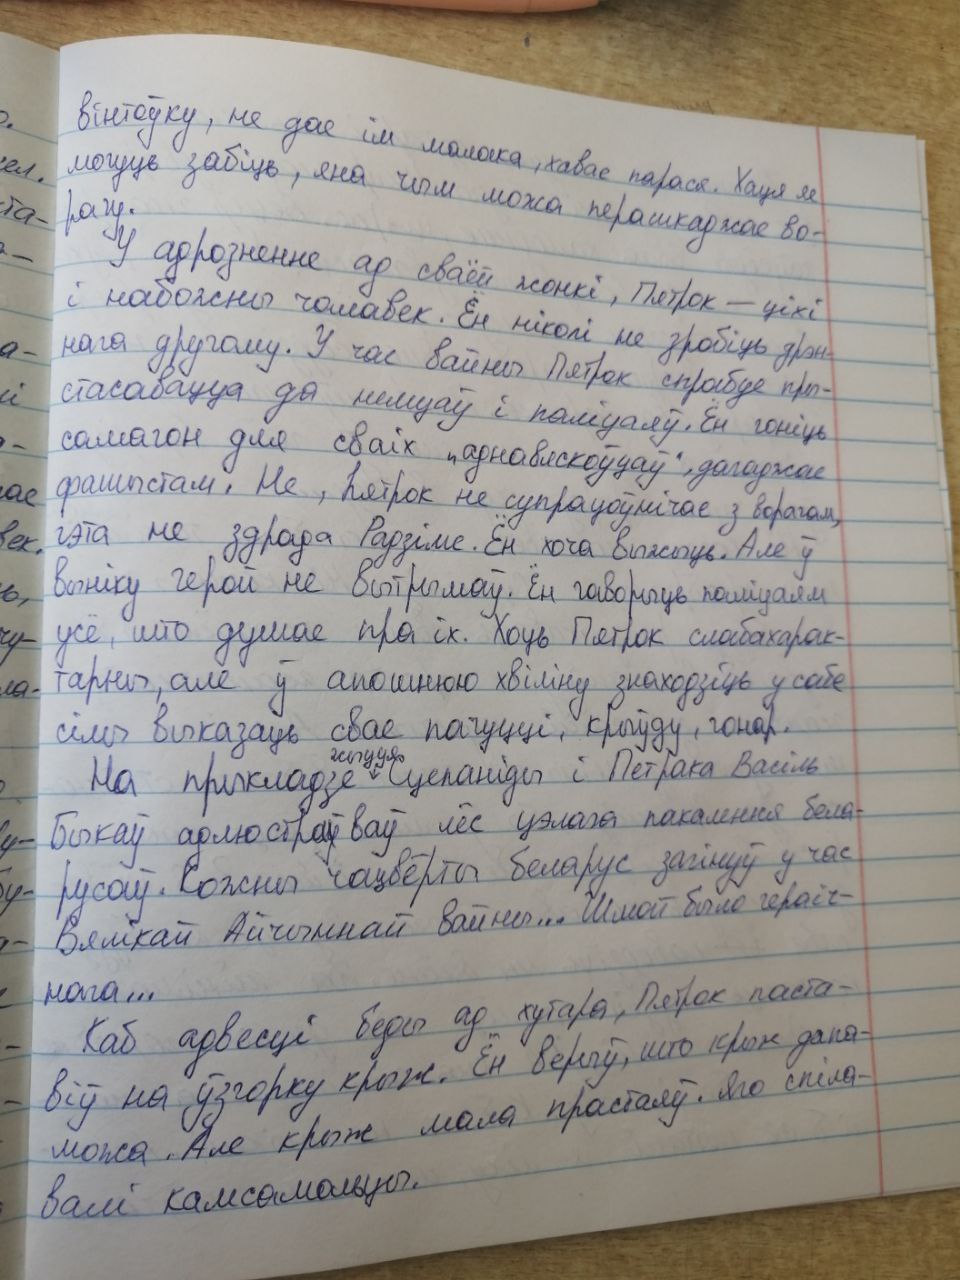 о.
вінтоўку, не дае ім малака, хавае парася. Хаця яе
ел.
могуць забіць, яна чым можа перашкаджае во-
та-
рагу.
У адрозненне ад сваёй жонкі, Пятрок — ціхі
і набожны чалавек. Ён ніколі не зробіць дрэн-
а-
нага другому. У час вайны Пятрок спрабуе пры-
і
стасавацца да немцаў і паліцаяў. Ён гоніць
самагон для сваіх „аднавяскоўцаў“, дагаджае
ае
фашыстам. Не, Пятрок не супрацоўнічае з ворагам,
век.
гэта не здрада Радзіме. Ён хоча выжыць. Але ў
ь,
выніку герой не вытрымаў. Ён гаворыць паліцаям
чу-
усё, што думае пра іх. Хоць Пятрок слабахарак-
ла-
тарны, але ў апошнюю хвіліну знаходзіць у сабе
сілы выказаць свае пачуцці, крыўду, гонар.
жыцця
На прыкладзе Сцепаніды і Петрака Васіль
у-
Быкаў адлюстраваў лёс цэлага пакалення бела-
бу-
русаў. Кожны чацвёрты беларус загінуў у час
Вялікай Айчыннай вайны... Шмат было гераіч-
нага...
Каб адвесці беды ад хутара, Пятрок паста-
віў на ўзгорку крыж. Ён верыў, што крыж дапа-
можа. Але крыж мала прастаяў. Яго спіла-
валі камсамольцы.